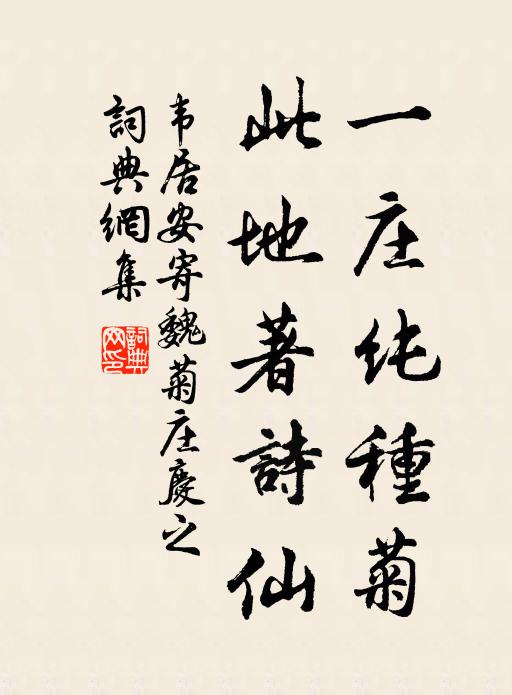 一庄纯種菊
此地著詩仙
韦居安寄魏菊庄慶之
詞典網集
詞典网印